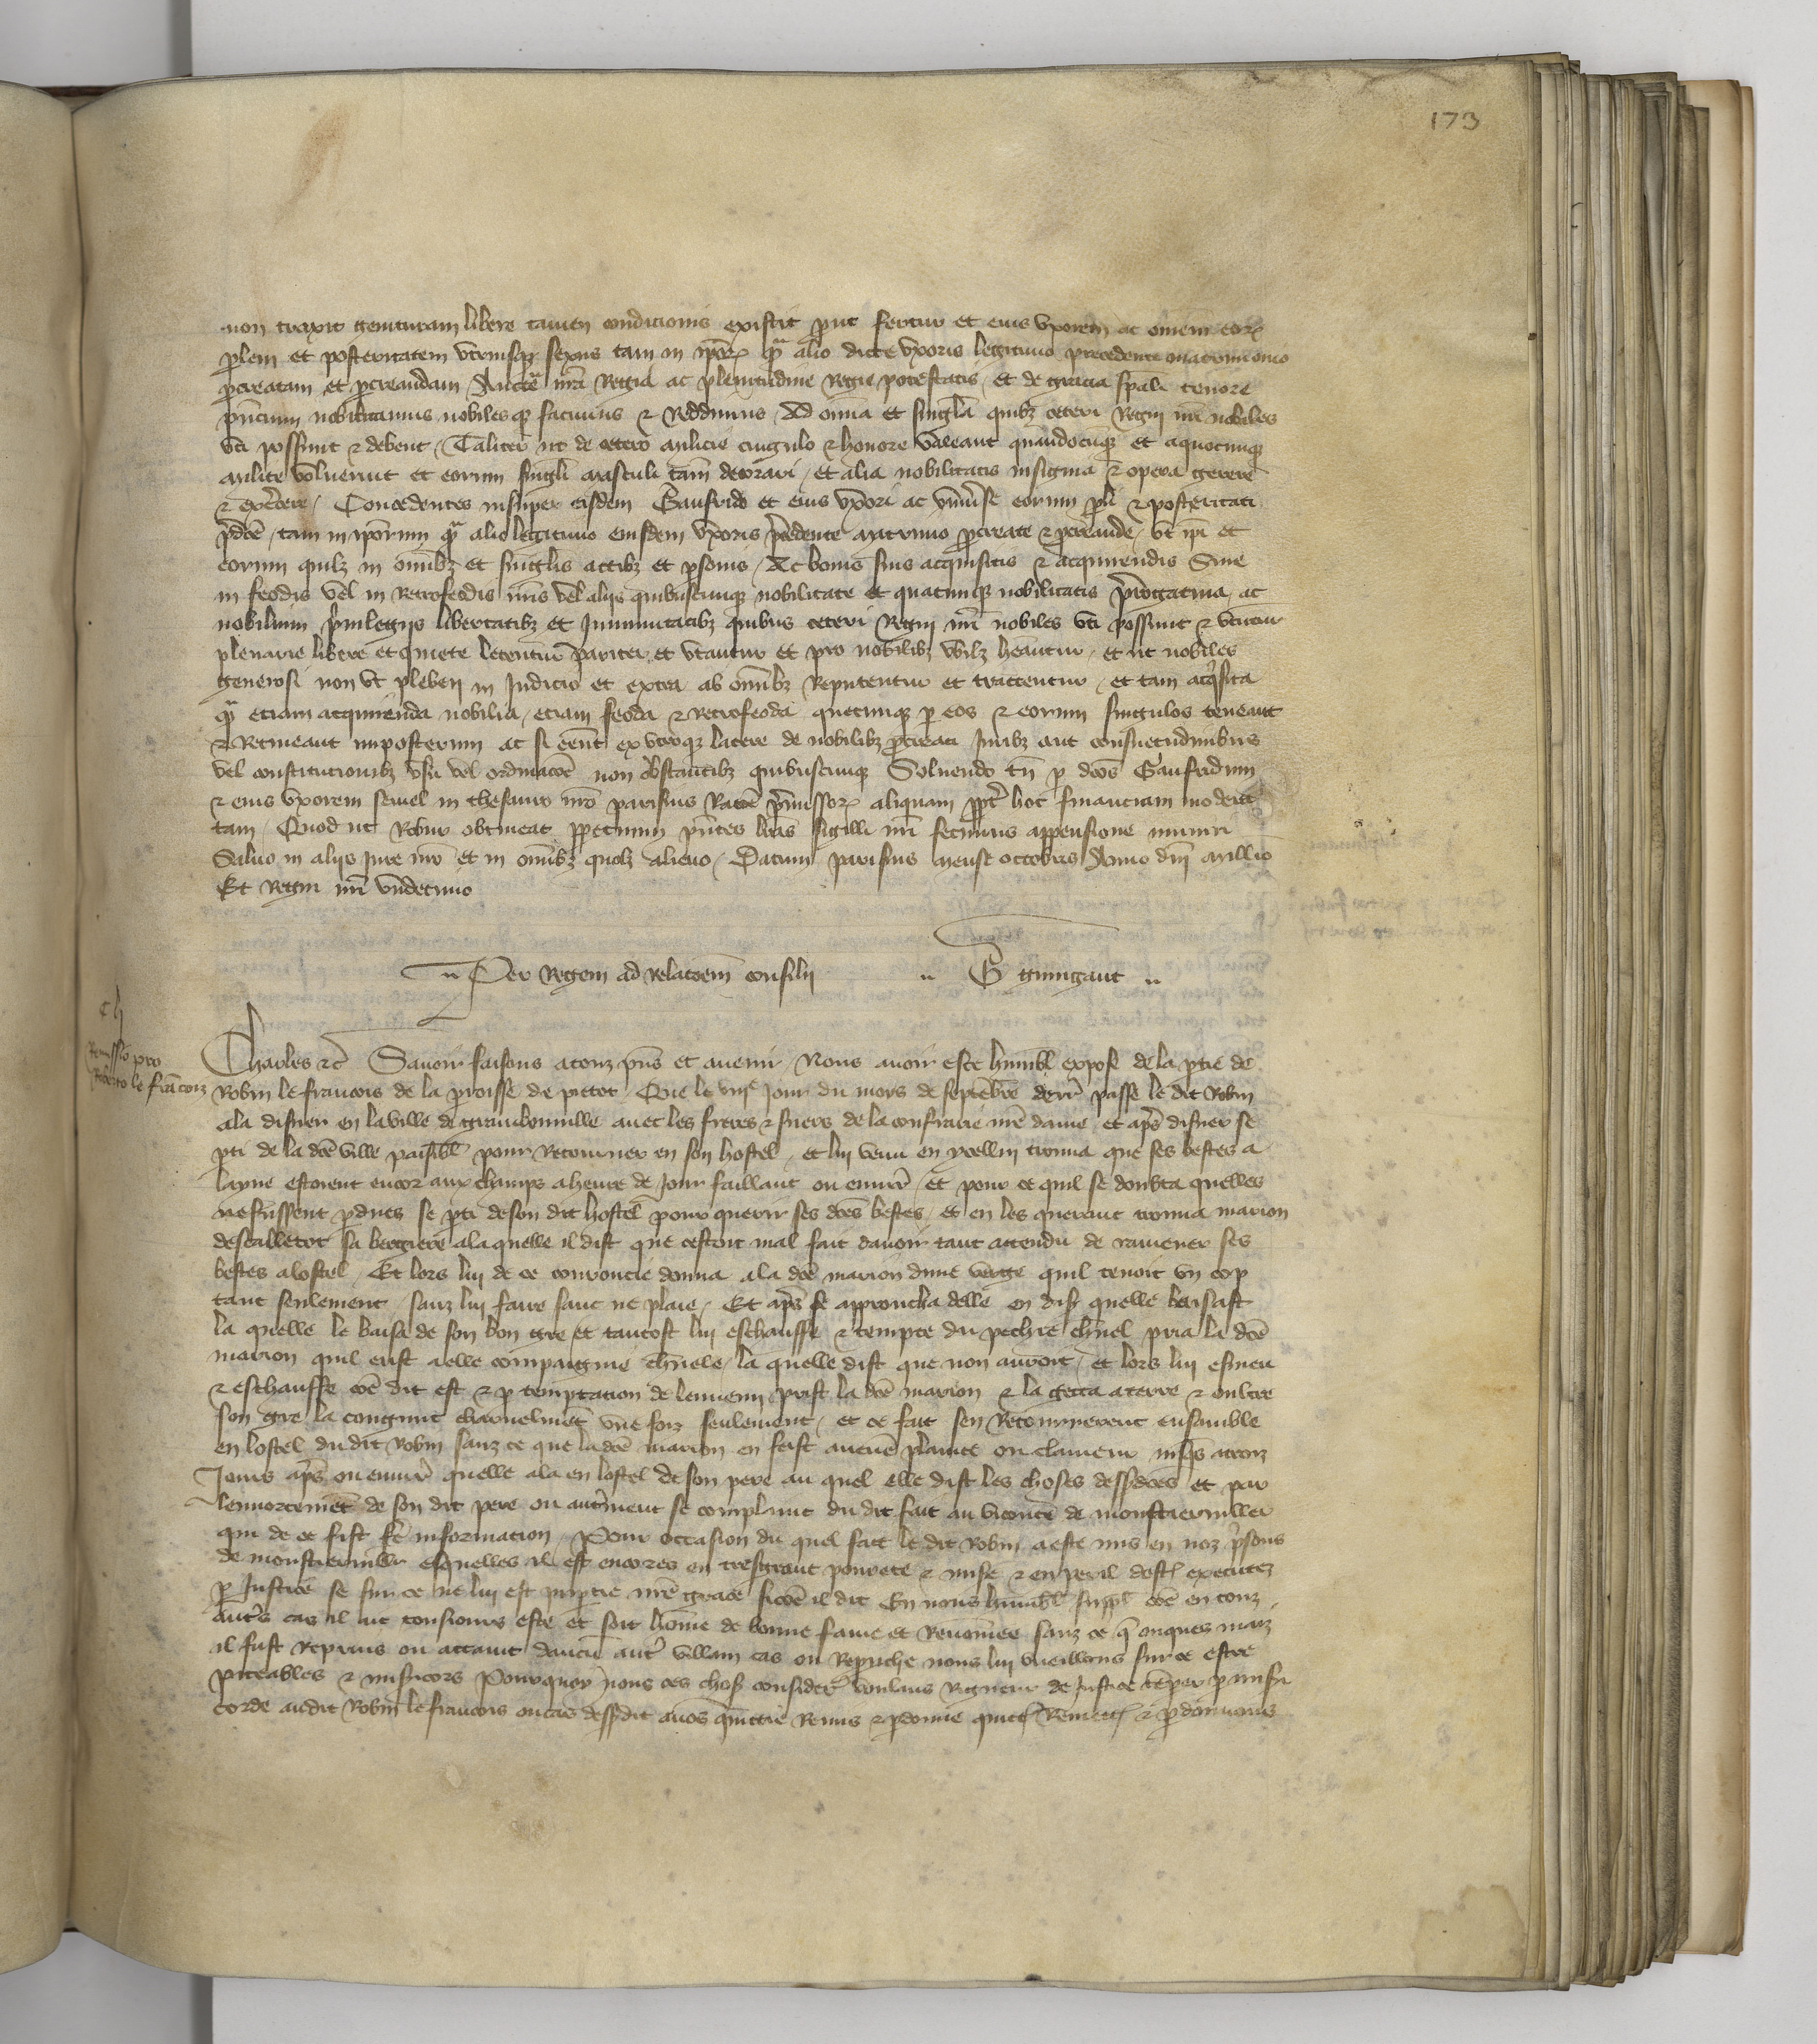 173
non traxit genituram libere tamen condicionis existit put fertur et eius uxorem ac omnem eor
plem et posteritatem utriusque sexus tam in ipor qm alio dicte uxoris legitimo precedente matrimonio
pcreatam et pcreandam Aucte nra Regia ac plenitudine Regie potestatis et de gracia spali tenore
pncium nobilitamus nobilesque facimus et Reddimus Ad omnia et singula quibz ceteri Regni nri nobiles
uti possunt et debent Taliter ut de cetero milicie cingulo et honore valeant quandocunque et aquocunque
milite voluerint et eorum singli masculi tam decorari et alia nobilitatis insignia et opera gerere
et exercere Concedentes insuper eisdem Gaufrido et eius uxori ac universe eorum pli et posteritati
pdce tam in iporum qm alio legitimo eiusdem uxoris pcedente matrimo pcreate et pcreande ut ipi et
eorum quilz in omibz et singlis actibz et psonis Ac bonis suis acquisitis et acquirendis Sive
in feodis vel in Retrofeodis nris vel aliis quibuscunque nobilitate et quacunque nobilitatis prerogativa ac
nobilium privilegiis libertatibz et Immunitatibz quibus ceteri Regni nri nobiles uti possunt et utuntur
plenarie libere et quiete letentur pariter et utantur et pro nobilibz ubilz heantur et ut nobiles
generosi non ut plebeii in Judicio et extra ab omibz Reputentur et tractentur et tam acqsita
qm etiam acquirenda nobilia etiam feoda et retrofeoda quecunque p eos et eorum singulos teneant
et Retineant imposterum ac si eent ex utroque latere de nobilibz pcreati Juribz aut consuetudinibus
vel constitucionibz usu vel ordinacoe non obstantibz quibuscunque Solvendo tn p dcos Gaufridum
et eius uxorem semel in thesauro nro parisius Racoe pmissor aliquam ppter hoc financiam modera
tam Quod ut Robur obtineat ppetuum pntes lras sigilli nri fecimus appensione muniri
Salvo in aliis Jure nro et in omibz quolz alieno Datum parisius mense octobris Anno dni millio
Et Regni nri undecimo
Per Regem ad relacoem consilii G guingant
Ch
Remissio pro
Roberto le francois
Charles etc Savoir faisons a touz pns et avenir Nous avoir este humbl expose de la ptie de
Robin le francois de la proisse de pietot Que le VIIIe Jour du mois de septebre derr passe le dit Robin
ala disner en la ville de grimbouville avec les freres et suers de la confrarie nre dame et aps disner se
pti de la dce ville paisibl pour Retourner en son hostel et lui venu en ycellui trouva que ses bestes a
layne estoient encor aux champs a heure de Jour faillant ou environ et pour ce quil se doubta quelles
ne fussent pdues se pti de son dit hostel pour querir ses dces bestes et en les querant trouva marion
descalletot sa bergiere a laquelle il dist que cestoit mal fait davoir tant attendu de ramener ses
bestes a lostel Et lors lui de ce courroucie donna a la dce marion dune verge quil tenoit un cop
tant seulement sanz lui faire sanc ne plaie Et aps se approucha delle en dist quelle baisast
la quelle le baisa de son bon gre et tantost lui eschauffe et tempte du pechie charnel pria la dce
marion quil eust a elle compaignie charnele la quelle dist que non auroit et lors lui esmeu
et eschauffe coe dit est et p temptation de lennemi prist la dce marion et la getta a terre et oultre
son gre la congnut charnelment une foiz seulement et ce fait sen Retournerent ensamble
en lostel du dit Robin sanz ce que ladce marion en feist aucune plainte ou clameur Jusqs a trois
Jours aps ou environ quelle ala en lostel de son pere au quel elle dist les choses dessdces et par
lennortement de son dit pere ou autrement se complaint du dit fait au viconte de monstiervillier
qui de ce fist fe informacion Pour occasion du quel fait le dit Robin a este mis en noz prisons
de monstierviller esquelles il est encores en tresgrant povrete et misere et en peril destre executez
p Justice se sur ce ne lui est impartie nre grace sicoe il dit En nous humbl suppl coe en touz
autrs cas il ait tousiours este et soit home de bonne fame et Renomee sanz ce q onques maiz
il fust Reprins ou attaint daucun autr villain cas ou Reprouche nous lui vueillons sur ce estre
piteables et misricors Pourquoy nous ces choses considerees voulans Rigueur de Justice temper p misri
corde audit Robin le francois ou cas dessdit avons quittie Remis et pdonne quittons Remettons et pardonnons